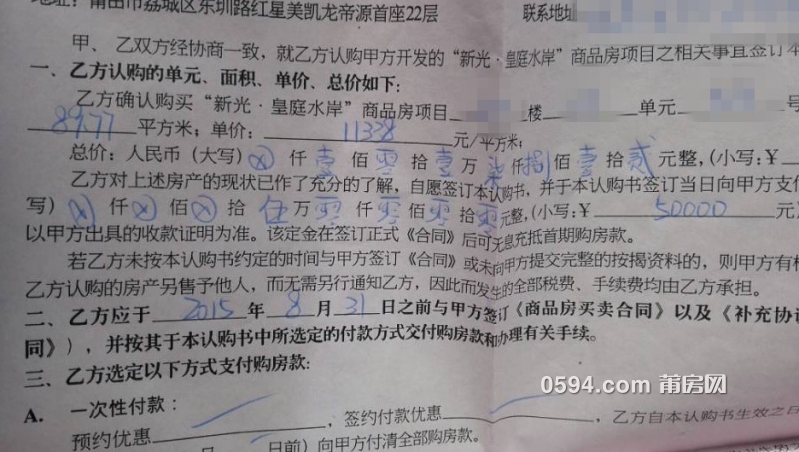 地址：莆田市荔城区东圳路红星美凯龙帝源首座22层 联系地址
甲、乙双方经协商一致，就乙方认购甲方开发的“新光·皇庭水岸”商品房项目之相关事宜签订本
一、乙方认购的单元、面积、单价、总价如下：
乙方确认购买“新光·皇庭水岸”商品房项目 楼 单元 号
89.77 平方米；单价： 11338 元/平方米；
总价：人民币（大写）ⓧ 仟 壹 佰 零 拾 壹 万 柒 仟 捌 佰 壹 拾 贰 元整，(小写：￥
乙方对上述房产的现状已作了充分的了解，自愿签订本认购书，并于本认购书签订当日向甲方支付
写）ⓧ 仟 ⓧ 佰 ⓧ 拾 伍 万 零 仟 零 佰 零 拾 零 元整，(小写：￥ 50000 元)
以甲方出具的收款证明为准。该定金在签订正式《合同》后可无息充抵首期购房款。
若乙方未按本认购书约定的时间与甲方签订《合同》或未向甲方提交完整的按揭资料的，则甲方有权
乙方认购的房产另售予他人，而无需另行通知乙方，因此而发生的全部税费、手续费均由乙方承担。
二、乙方应于 2015 年 8 月 31 日之前与甲方签订《商品房买卖合同》以及《补充协议
同》），并按其于本认购书中所选定的付款方式交付购房款和办理有关手续。
三、乙方选定以下方式支付购房款：
0594.com 莆房网
A. 一次性付款：
预约优惠 ，签约付款优惠 ，乙方自本认购书生效之日
日前）向甲方付清全部购房款。